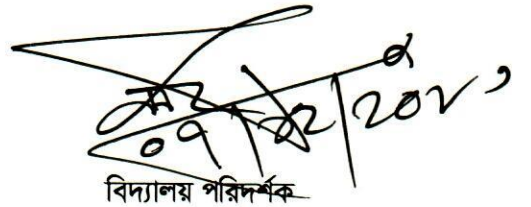 ০৭/১২/২০২১
বিদ্যালয় পরিদর্শক